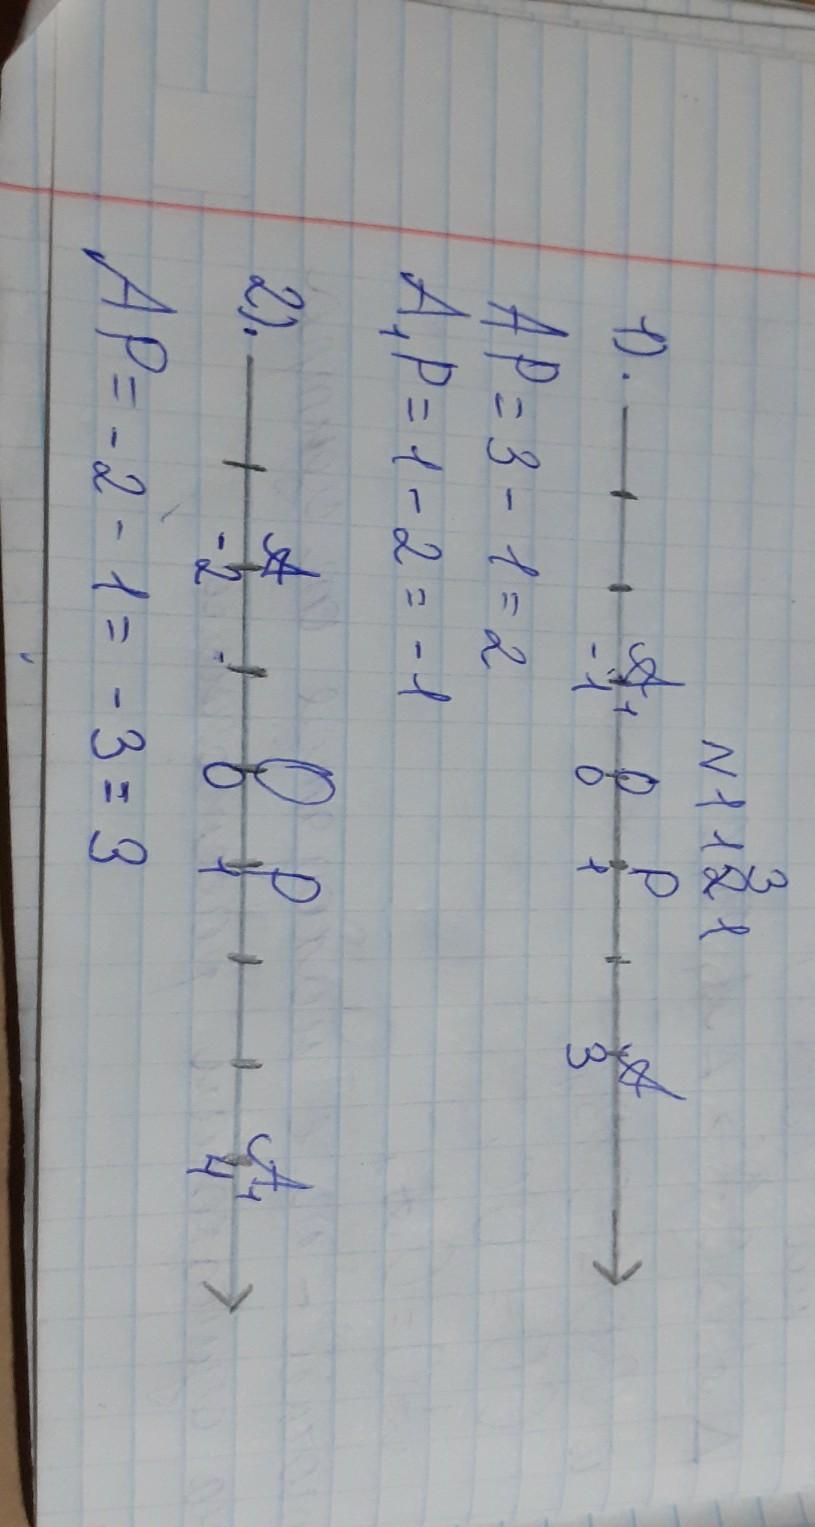 N 1131
1).
A₁ O P A
-1 0 1 3
AP = 3 - 1 = 2
A₁P = 1 - 2 = -1
2).
A O P A₁
-2 0 1 4
AP = -2 - 1 = -3 = 3